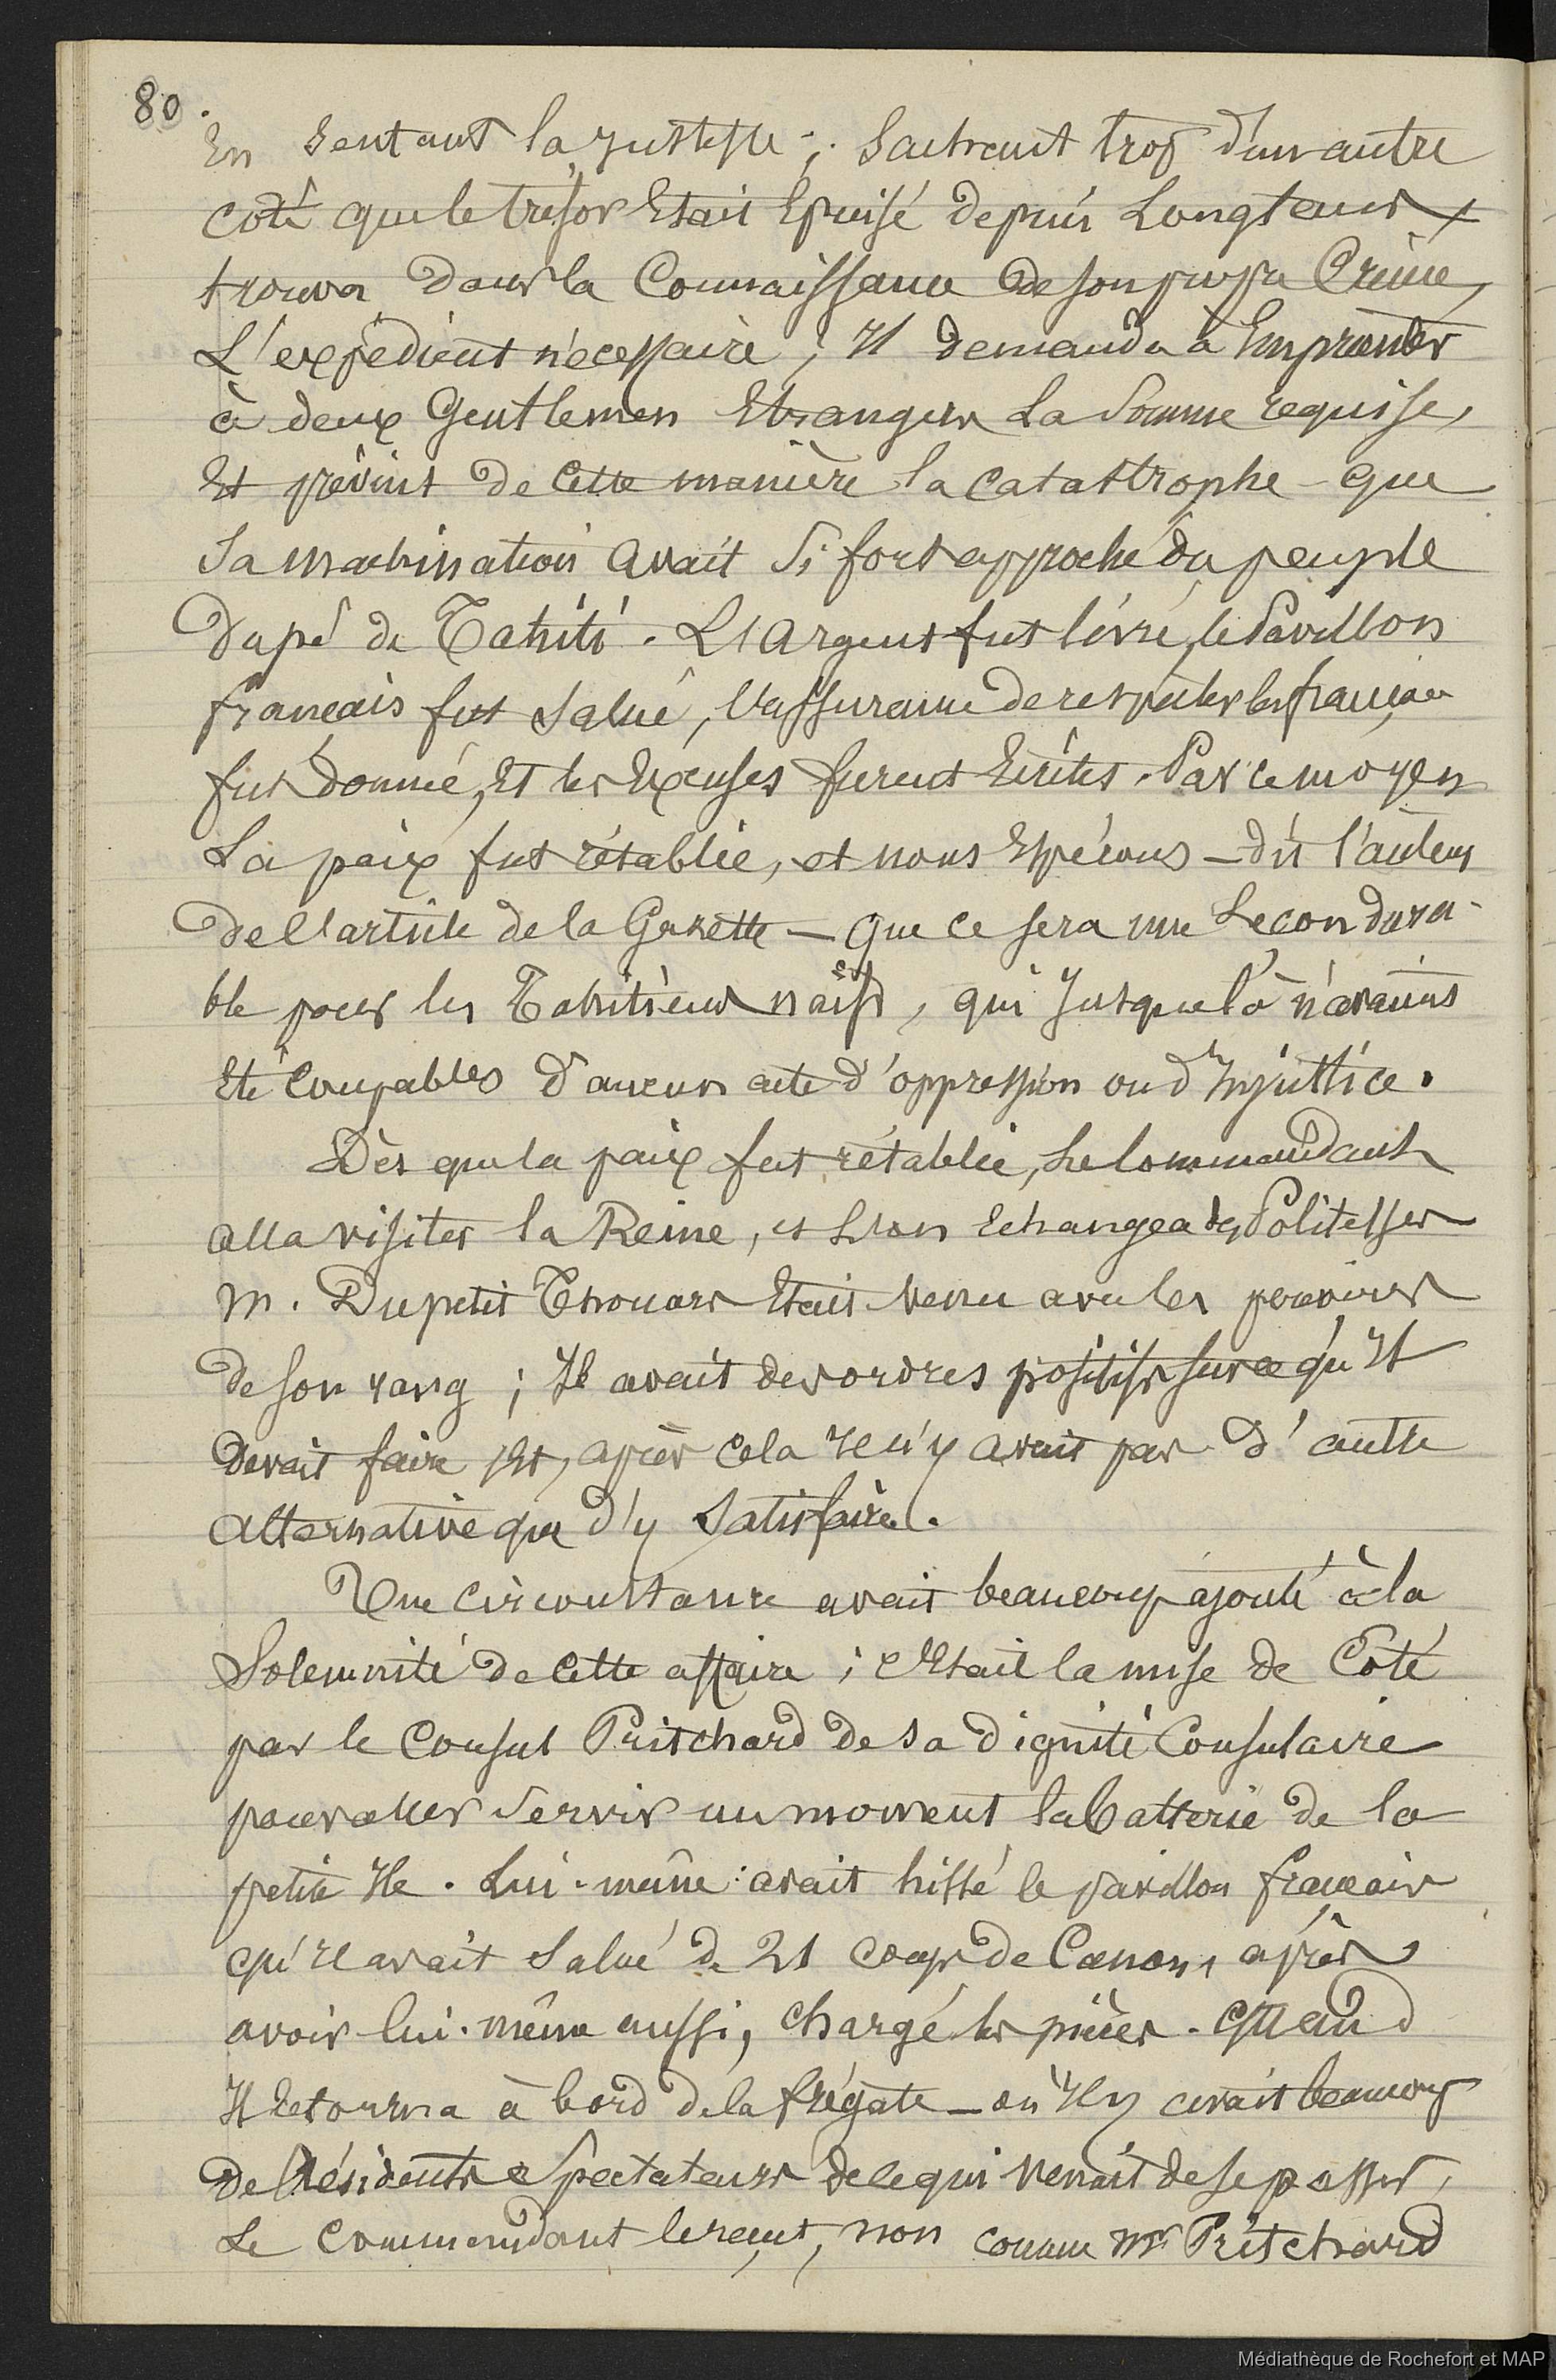 80.
En sentant la justesse ; sachant trop d'un autre
coté que le trésor Etait Epuisé depuis Longtems
trouva dans la Connaissance de son propre Crime,
L'expédient nécessaire ; Il demanda à Emprunter
à deux Gentlemen Etrangers La Somme requise,
Et prévint de Cette manière la catastrophe que
Sa machination avait Si fort approché du peuple
Dupé de Tahiti. L'Argent fut livré, le Pavillon
français fut Salué, l'assurance de respecter les français
fut donnée, Et les Excuses furent Ecrites. Par ce moyen
La paix fut rétablie, et nous Espérons — dit l'auteur
de l'article de la Gazette — que ce sera une Leçon dura-
ble pour les Tahitiens naïfs, qui Jusque là n'avaient
Eté Coupables d'aucun acte d'oppression ou d'Injustice.
Dès que la paix fut rétablie, Le Commandant
alla visiter la Reine, et L'on Echangea des Politesses
M. Dupetit Thouars Etait venu avec les pouvoirs
de son rang ; Il avait des ordres positifs sur ce qu'Il
devait faire Et, après cela Il n'y avait pas d'autre
alternative que d'y Satisfaire.
Une circonstance avait beaucoup ajouté à la
Solemnité de Cette affaire ; c'Etait la mise de Coté
par le Consul Pritchard de sa dignité Consulaire
pour aller Servir un moment la batterie de la
petite Ile. Lui-même avait hissé le pavillon français
qu'Il avait Salué de 21 coups de Canons, après
avoir lui-même aussi, chargé les pièces. Quand
Il Retourna à bord de la frégate — où Il y avait beaucoup
de Résidents Spectateurs de ce qui venait de se passer,
Le Commandant le reçut, non comme Mr Pritchard
Médiathèque de Rochefort et MAP